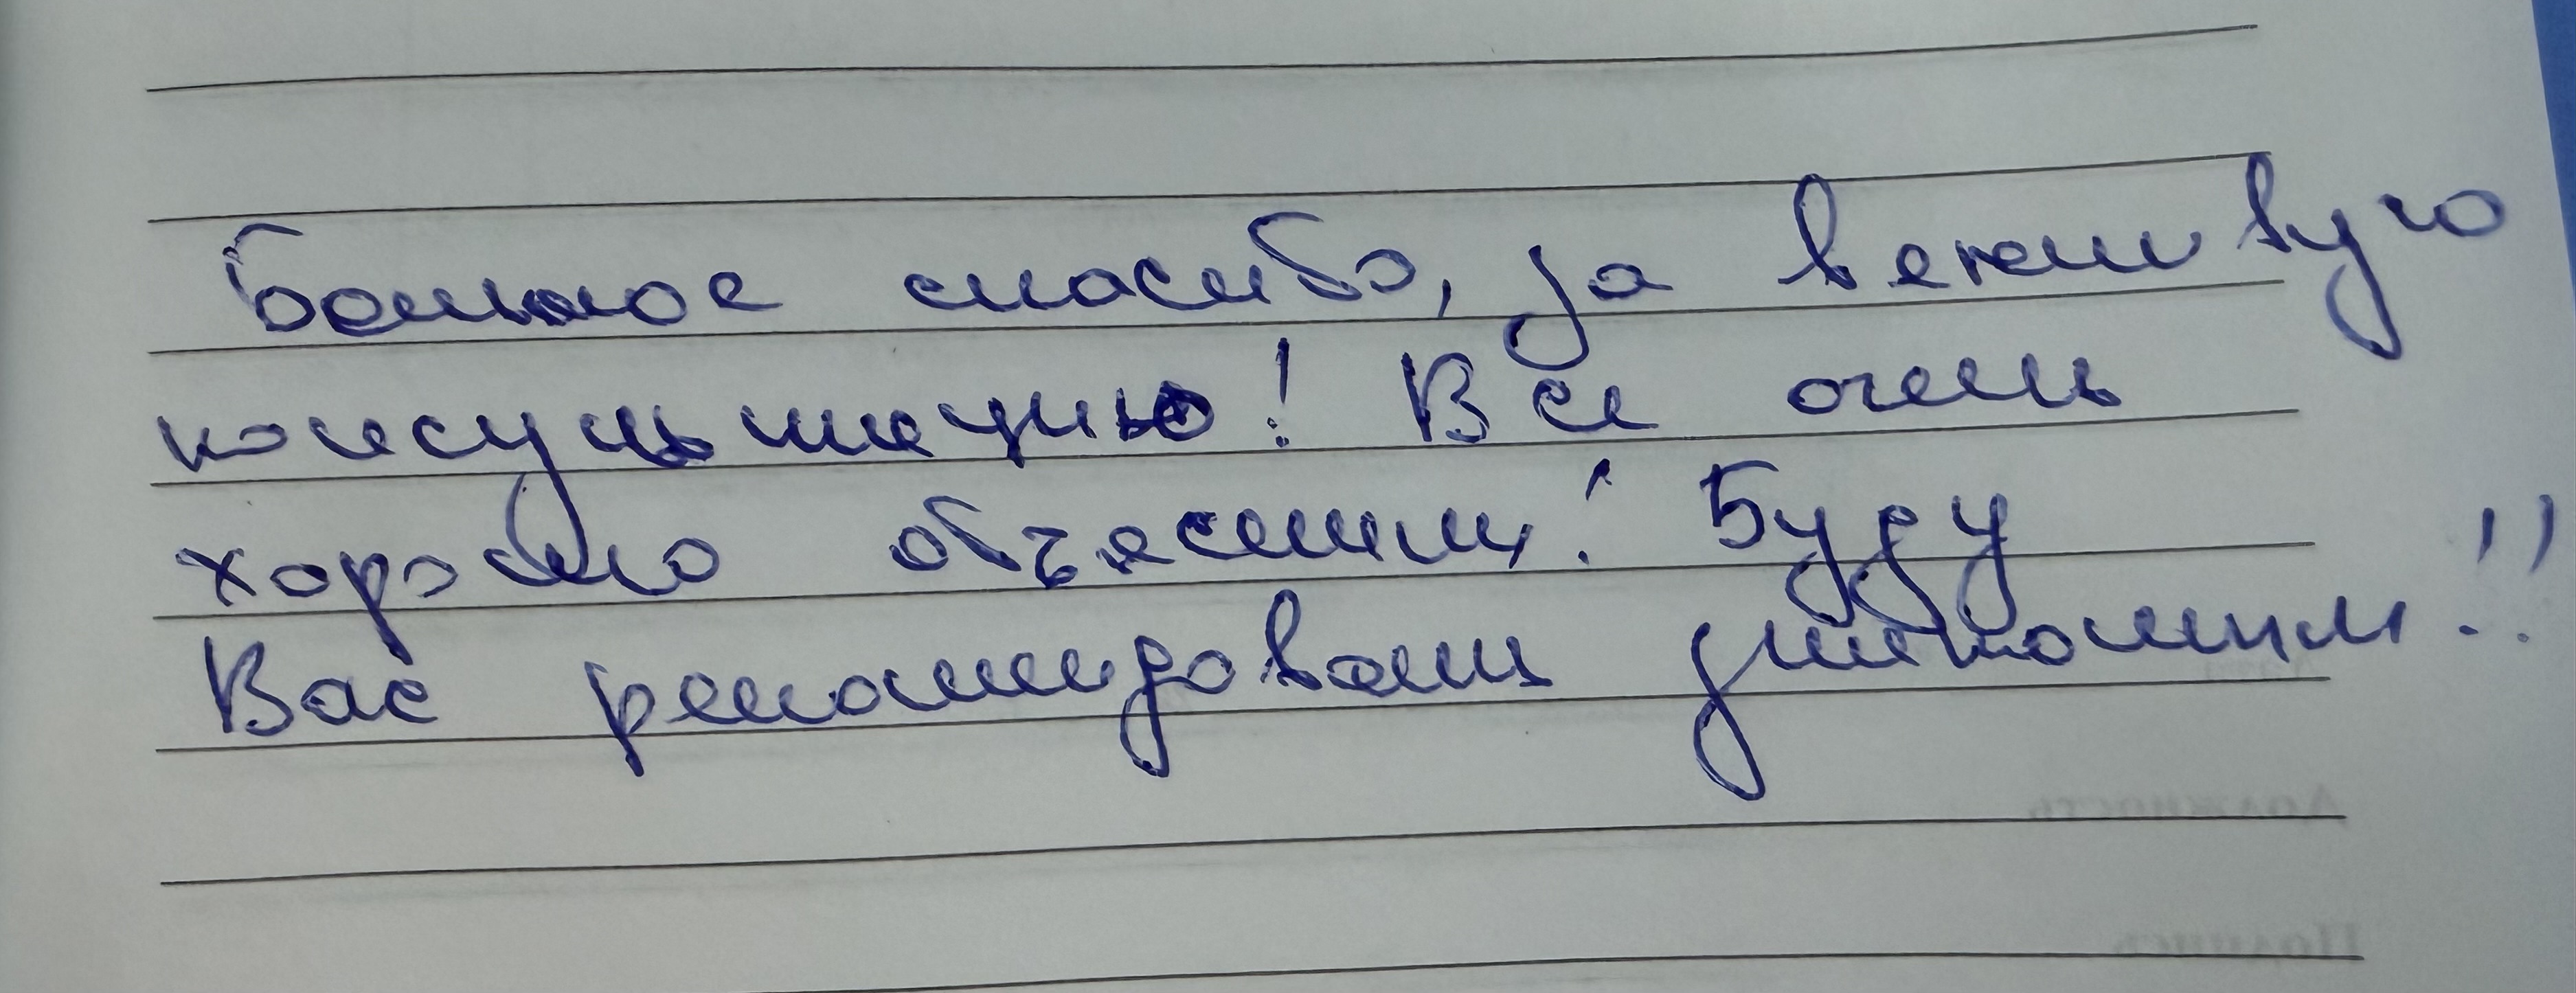 Большое спасибо, за вежливую
консультацию! Все очень
хорошо объяснили! Буду
Вас рекомендовать знакомым!!
Должность